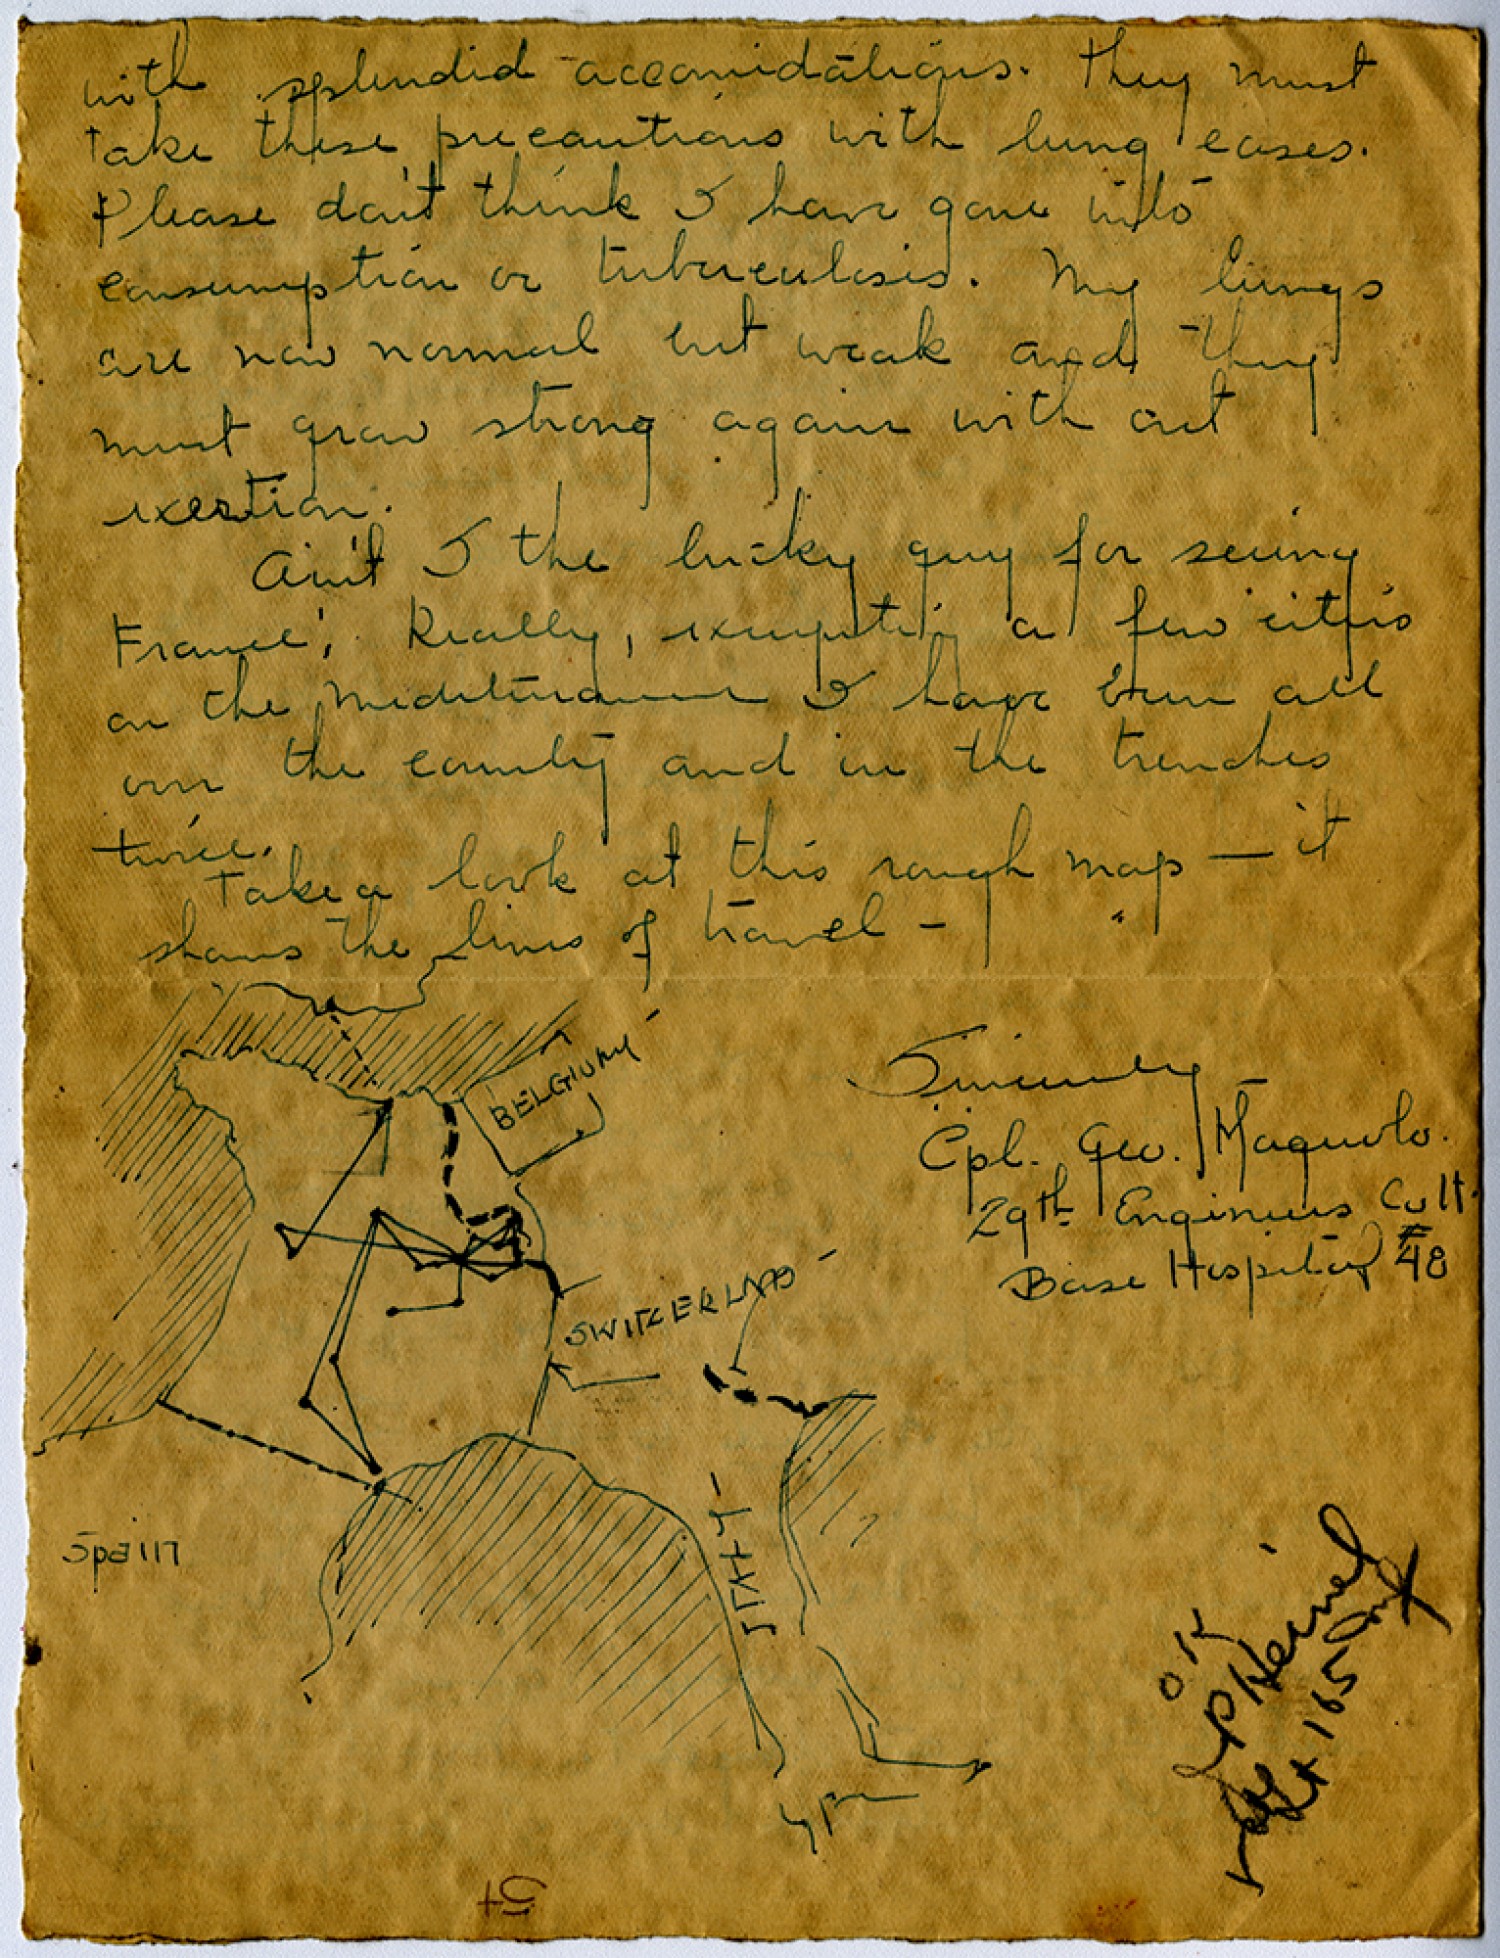 with splendid accomidations. They must
take these precautions with lung cases.
Please don't think I have gone into
consumption or tuberculosis. My lungs
are now normal but weak and they
must grow strong again with out
exertion.
Ain't I the lucky guy for seeing
France! Really, excepting a few cities
on the I have been all
over the country and in the trenches
twice.
Take a look at this rough map — it
shows the lines of travel -
Sincerely
Cpl. Geo.
29th Engineers
Base Hospital #48
BELGIUM
SWITZERLAND
ITALY
Spain
OK
165
54